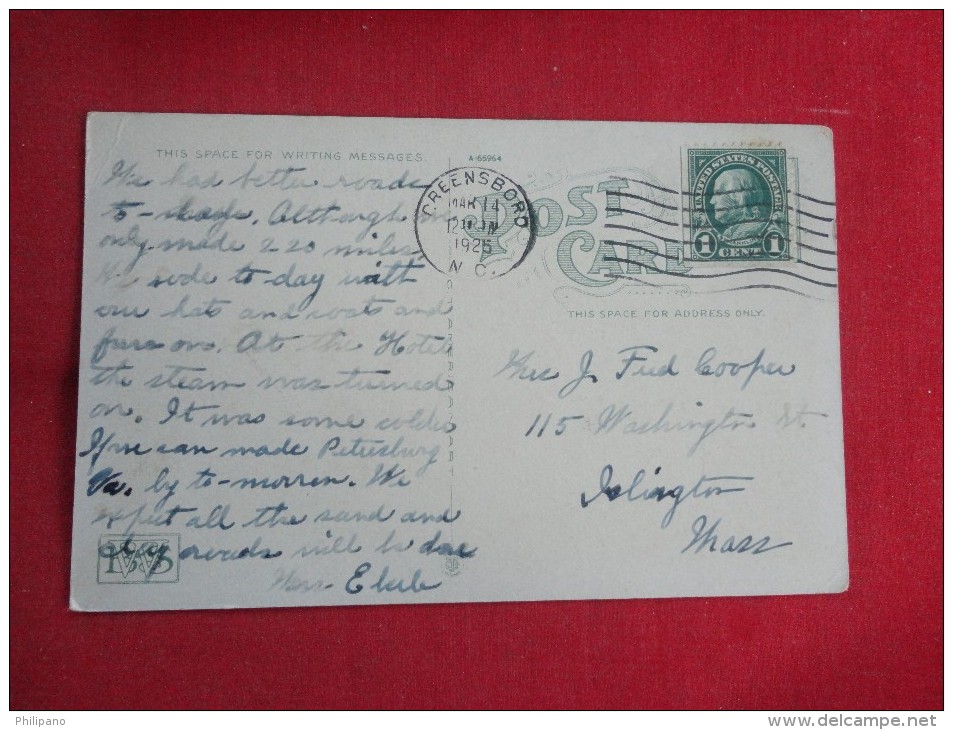 THIS SPACE FOR WRITING MESSAGES.
A-65954
We had better roads
to-day. Although we
only made 220 miles.
We rode to day with
our hats and coats and
furs on. At the Hotel
the steam was turned
on. It was some colder
If we can made Petersburg
Va. by to-morrow. We
expect all the sand and
clay roads will be done
Mrs. Eberle
GREENSBORO
MAR 14
12
1925
N.C.
POST
CARD
UNITED STATES POSTAGE
FRANKLIN
1 CENT 1
THIS SPACE FOR ADDRESS ONLY.
Mrs J. Fred Cooper
115 Washington St
Islington
Mass
Philipano
www.delcampe.net